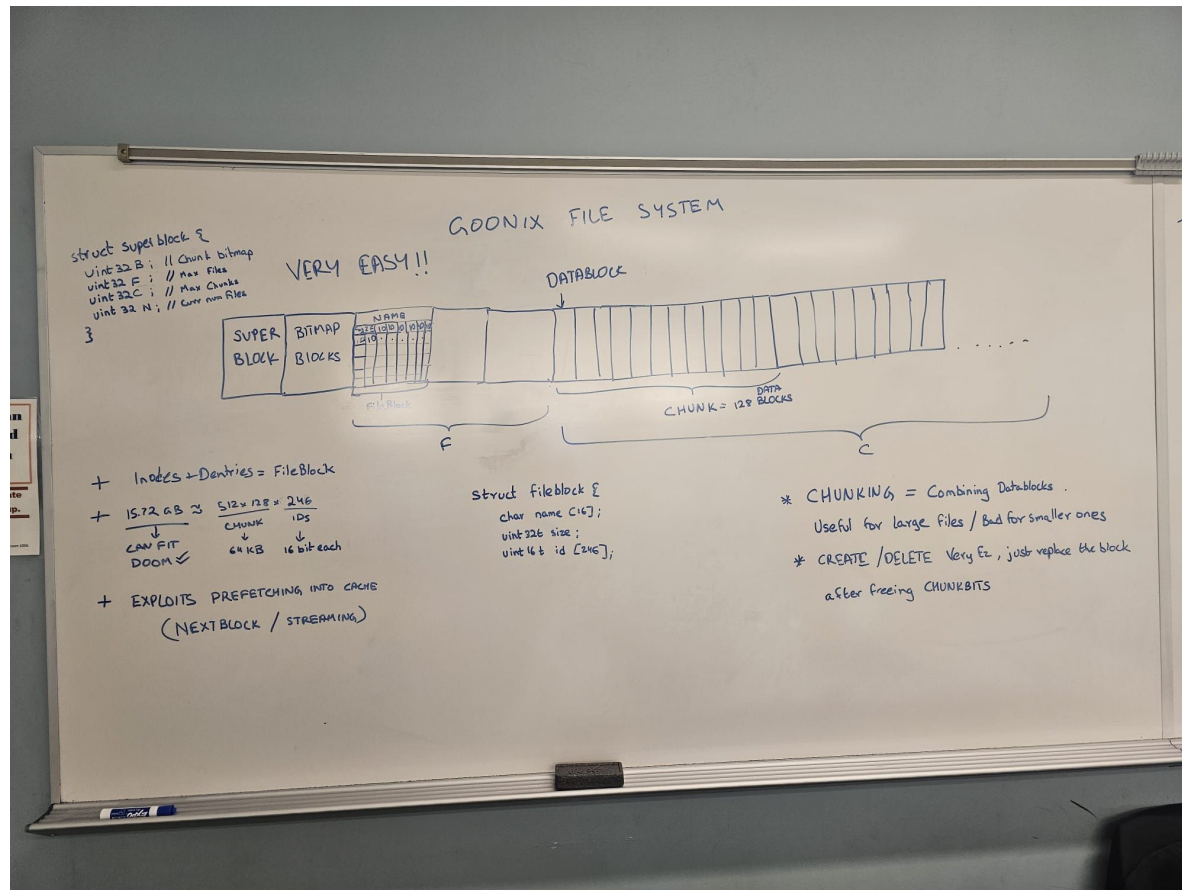 GOONIX FILE SYSTEM
struct superblock {
uint32 B; // Chunk bitmap
uint32 F; // Max Files
uint32C; // Max Chunks
uint 32 N; // Curr num files
}
VERY EASY!!
DATABLOCK
SUPER
BLOCK
BITMAP
BLOCKS
NAME
FileBlock
F
CHUNK = 128 DATA BLOCKS
C
+ Inodes + Dentries = FileBlock
+ 15.72 GB ≈ 512 x 128 x 246
CHUNK IDs
CAN FIT
DOOM ✓
64 KB 16 bit each
+ EXPLOITS PREFETCHING INTO CACHE
(NEXTBLOCK / STREAMING)
struct fileblock {
char name [16];
uint 32t size;
uint 16 t id [246];
* CHUNKING = Combining Datablocks.
Useful for large files / Bad for smaller ones
* CREATE / DELETE Very Ez, just replace the block
after freeing CHUNKBITS